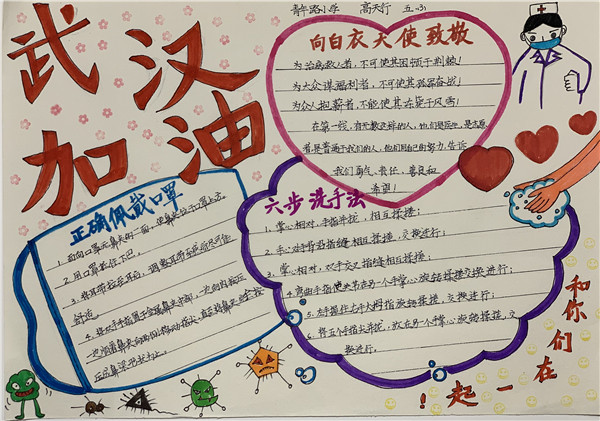 青年路小学 高天行 五.3
武汉
加油
向白衣天使致敬
为治病救人者,不可使其困顿于荆棘!
为大众谋福利者,不可使其孤军奋战!
为众人抱薪者,不能使其冻毙于风雪!
在第一线,有无数这样的人,他们是医生,是志愿
者,是普通干我们的人,他们用自己的努力,告诉
我们勇气、责任、善良和
希望!
正确佩戴口罩
1. 面向口罩无鼻夹的一面,使鼻夹位于口罩上方。
2. 用口罩抵住下巴。
3. 将耳带拉至耳后,调整耳带至感觉尽可能
舒适。
4. 将双手手指置于金属鼻夹中部,一边向内按压
一边顺着鼻夹向两侧移动指尖,直至将鼻夹完全按
压成鼻梁形状为止。
六步洗手法
1. 掌心相对,手指并拢,相互揉搓;
2. 手心对手背沿指缝相互揉搓,交换进行;
3. 掌心相对,双手交叉指缝相互揉搓;
4. 弯曲手指使关节在另一个手掌心旋转揉搓交换进行;
5. 右手握住左手大拇指旋转揉搓,交换进行;
6. 将五个手指尖并拢,放在另一个手掌心旋转揉搓,交
换进行。
和你们在一起!